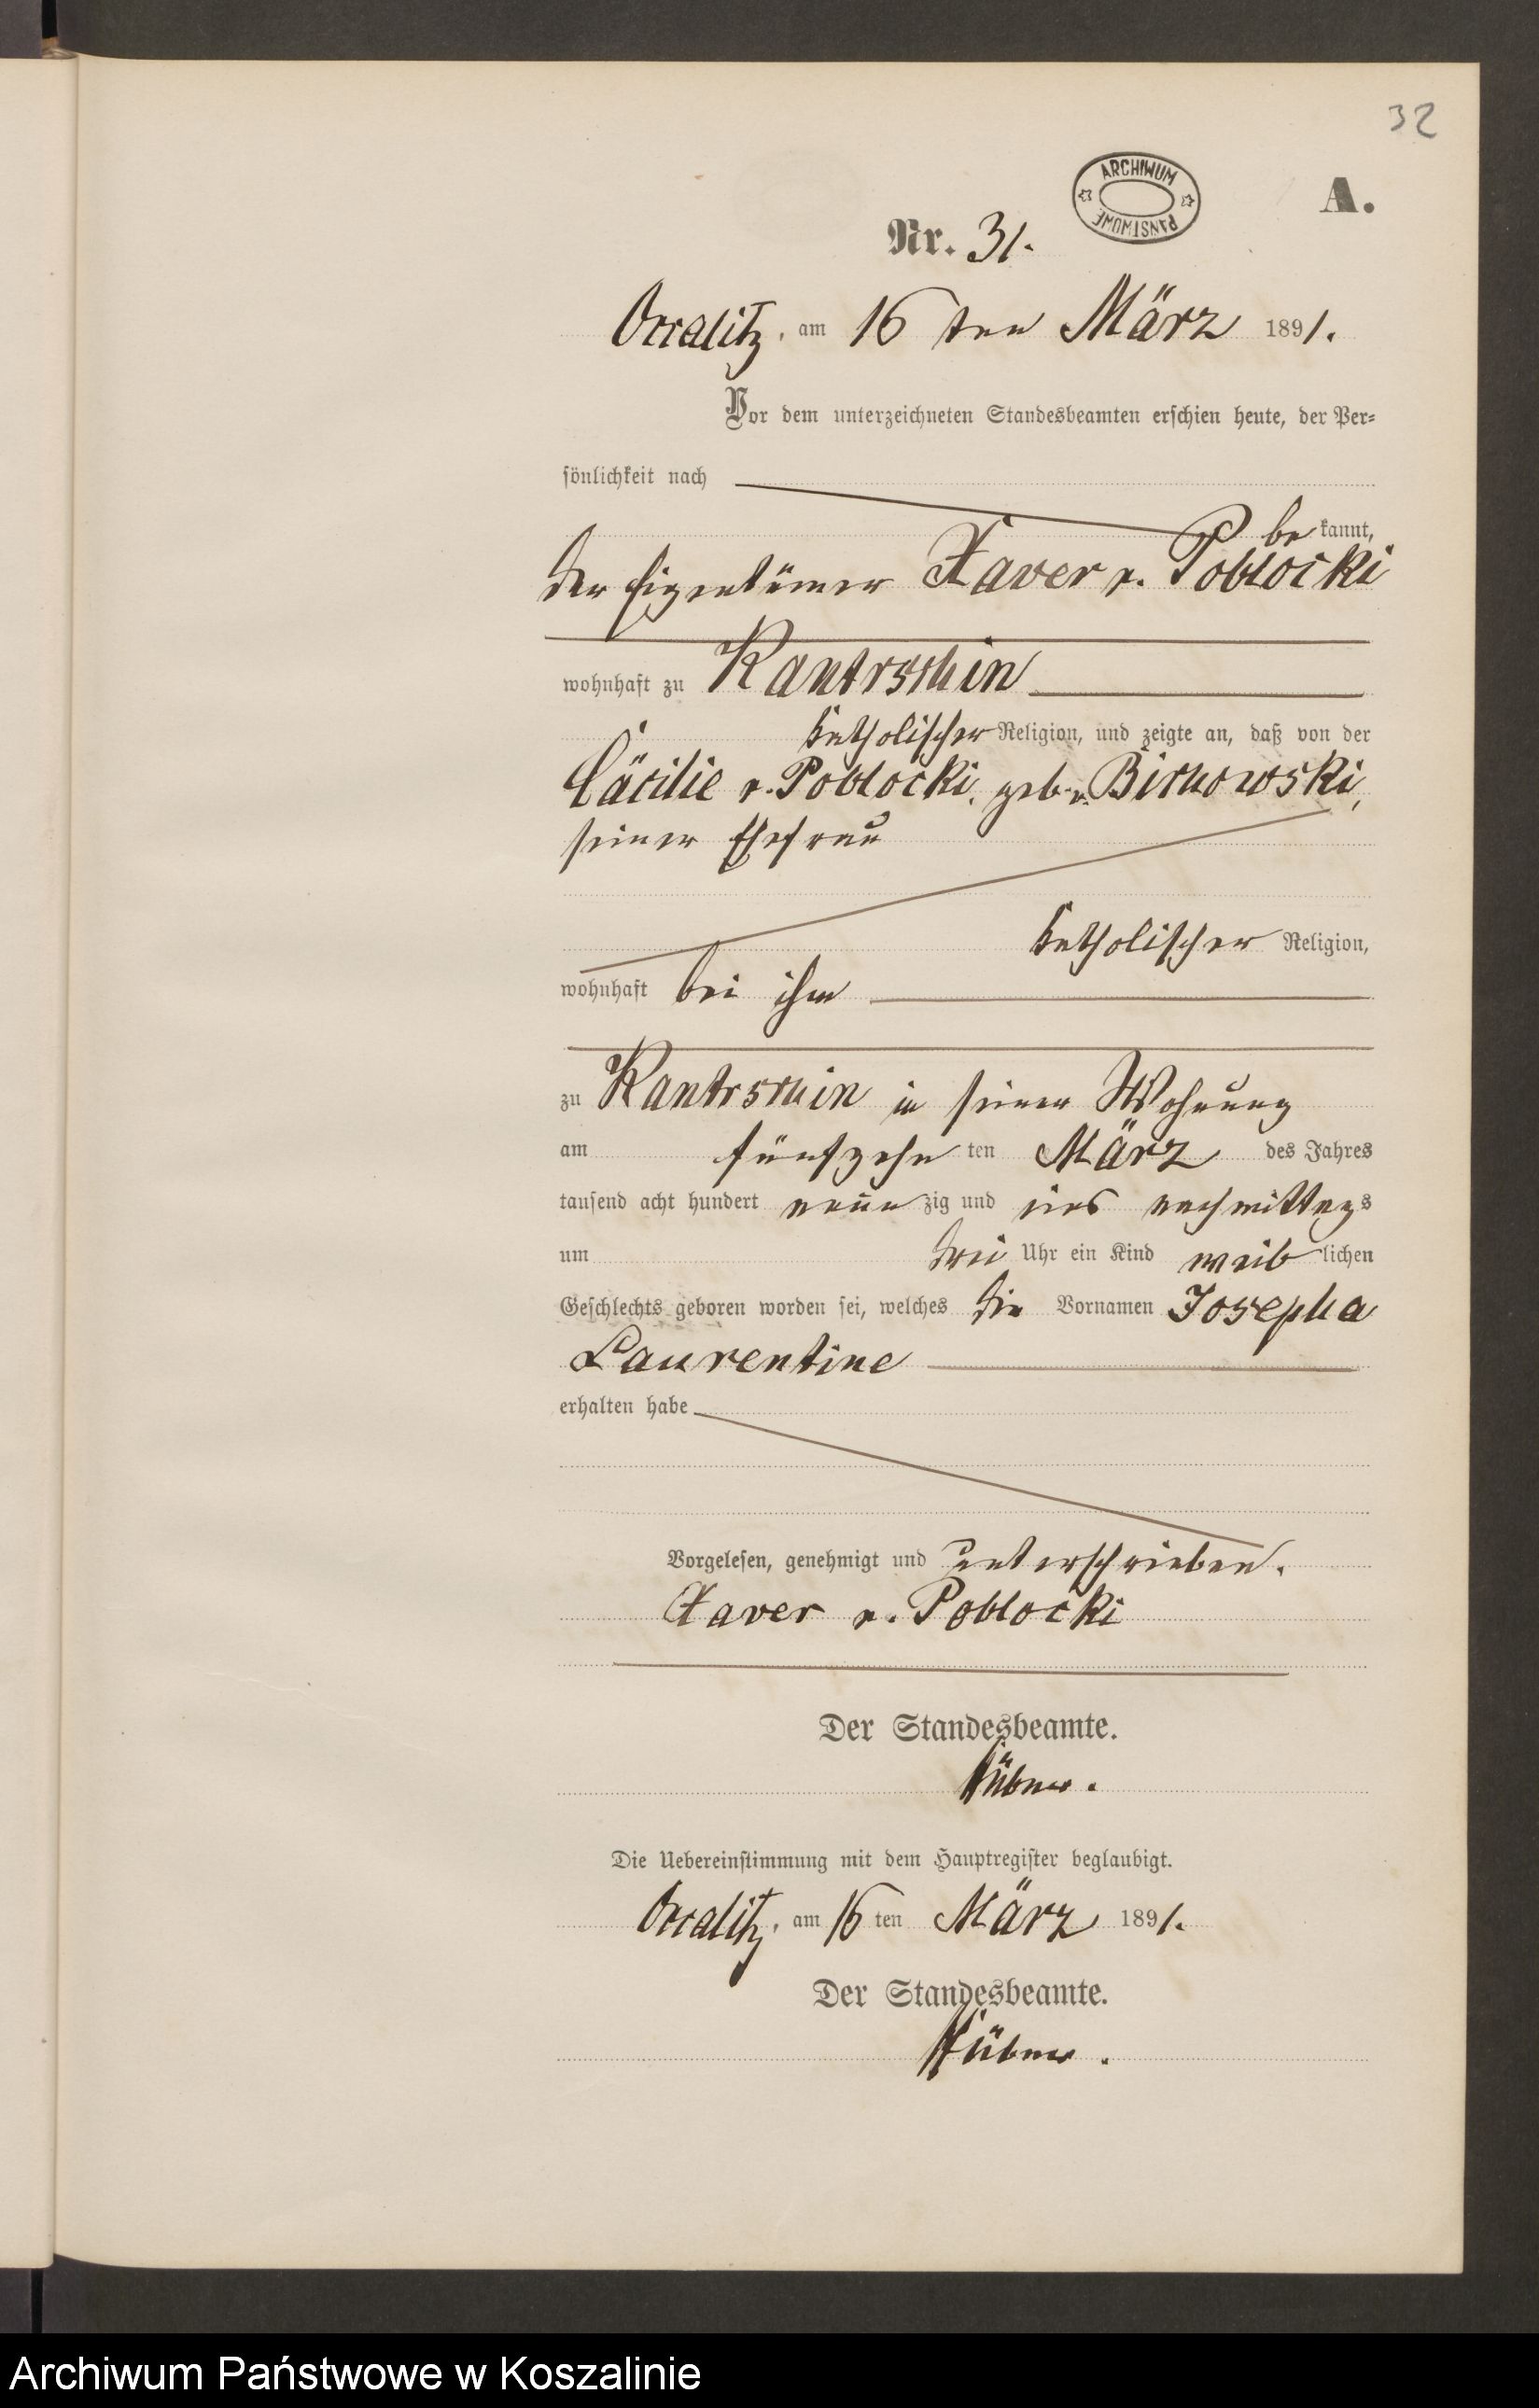 32
ARCHIWUM PAŃSTWOWE
A.
Nr. 31.
Occalitz, am 16 ten März 1891.
Vor dem unterzeichneten Standesbeamten erschien heute, der Per=
sönlichkeit nach
be kannt,
der Eigentümer Xaver v. Poblocki
wohnhaft zu Kantrschin
katholischer Religion, und zeigte an, daß von der
Cäcilie v. Poblocki, geb. v. Bichowski,
seiner Ehefrau
katholischer Religion,
wohnhaft bei ihm
zu Kantrschin in seiner Wohnung
am fünfzehn ten März des Jahres
tausend acht hundert neun zig und eins nachmittags
um drei Uhr ein Kind weib lichen
Geschlechts geboren worden sei, welches die Vornamen Josepha
Laurentine
erhalten habe
Vorgelesen, genehmigt und unterschrieben.
Xaver v. Poblocki
Der Standesbeamte.
Hübner.
Die Uebereinstimmung mit dem Hauptregister beglaubigt.
Occalitz, am 16 ten März 1891.
Der Standesbeamte.
Hübner.
Archiwum Państwowe w Koszalinie